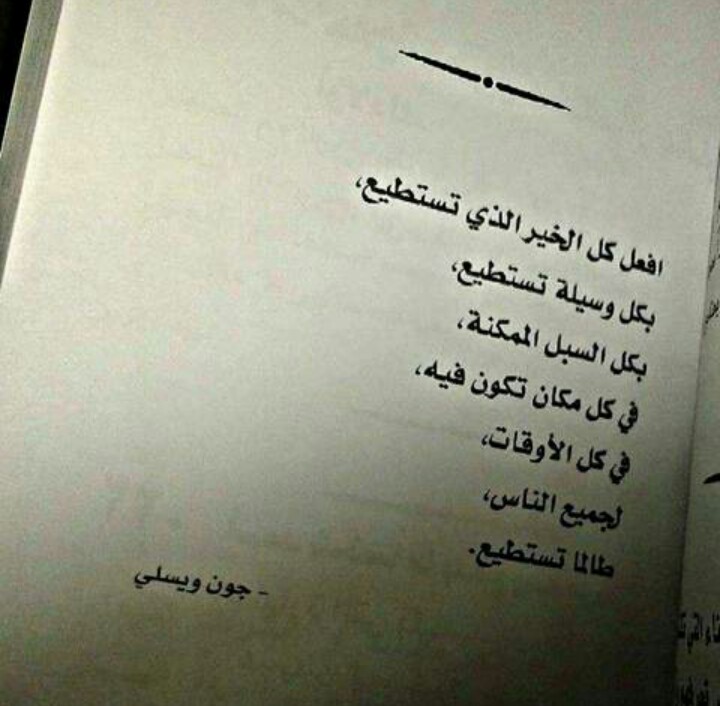 افعل كل الخير الذي تستطيع،
بكل وسيلة تستطيع،
بكل السبل الممكنة،
في كل مكان تكون فيه،
في كل الأوقات،
لجميع الناس،
طالما تستطيع.
- جون ويسلي